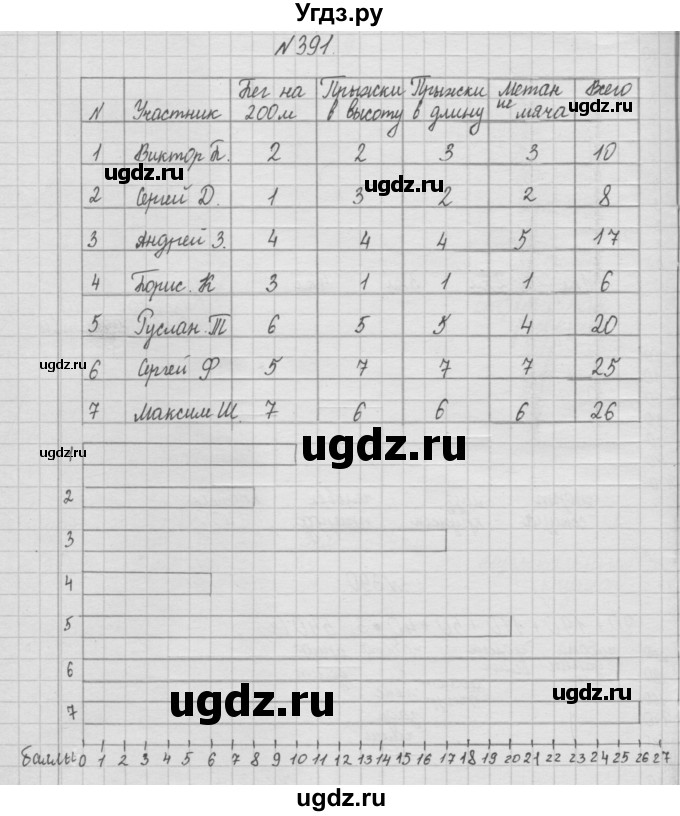 Угдз.ру
N 391.
N Участник Бег на 200м Прыжки в высоту Прыжки в длину Метание мяча Всего
ugdz.ru
1 Виктор П. 2 2 3 3 10
ugdz.ru ugdz.ru
2 Сергей Д. 1 3 2 2 8
3 Андрей З. 4 4 4 5 17
4 Борис. К 3 1 1 1 6
5 Руслан. Т 6 5 5 4 20
ugdz.ru
6 Сергей Ф 5 7 7 7 25
7 Максим Ш. 7 6 6 6 26
ugdz.ru ugdz.ru
1
2
3
4
5
6
ugdz.ru ugdz.ru
7
баллы 0 1 2 3 4 5 6 7 8 9 10 11 12 13 14 15 16 17 18 19 20 21 22 23 24 25 26 27
ugdz.ru